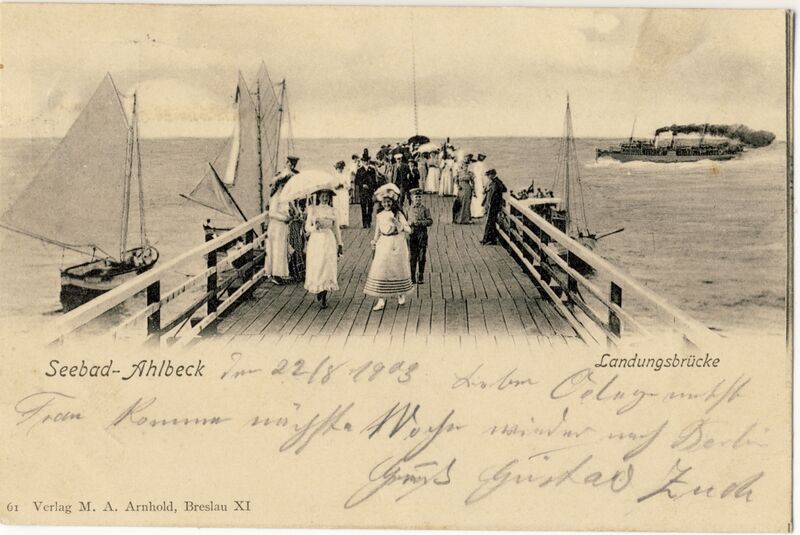 Seebad-Ahlbeck den 22/8 1903 Lieber
Landungsbrücke
Frau komme nächste Woche wieder nach Berlin
Gruß Gustav
61 Verlag M. A. Arnhold, Breslau XI